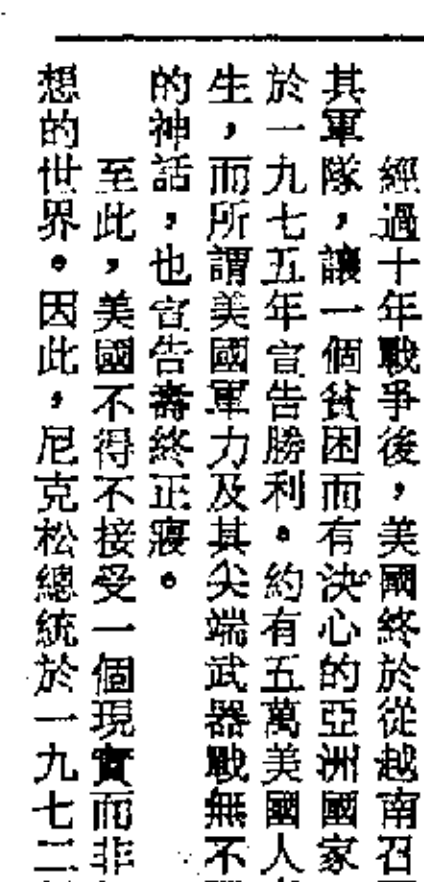 經過十年戰爭後，美國終於從越南召
其軍隊，讓一個貧困而有決心的亞洲國家
於一九七五年宣告勝利。約有五萬美國人
生，而所謂美國軍力及其尖端武器戰無不
的神話，也宣告壽終正寢。
至此，美國不得不接受一個現實而非
想的世界。因此，尼克松總統於一九七二